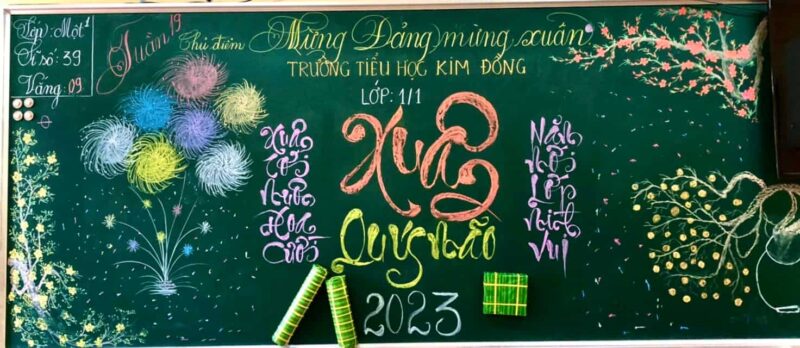 Lớp: Một 1
Sĩ số: 39
Vắng: 09
Tuần 19
Chủ điểm Mừng Đảng mừng xuân
TRƯỜNG TIỂU HỌC KIM ĐỒNG
LỚP: 1/1
Xuân
Tới
Muôn
Hoa
Cười
Xuân
Quý Mão
2023
Năm
Mới
Lớp
Mình
Vui